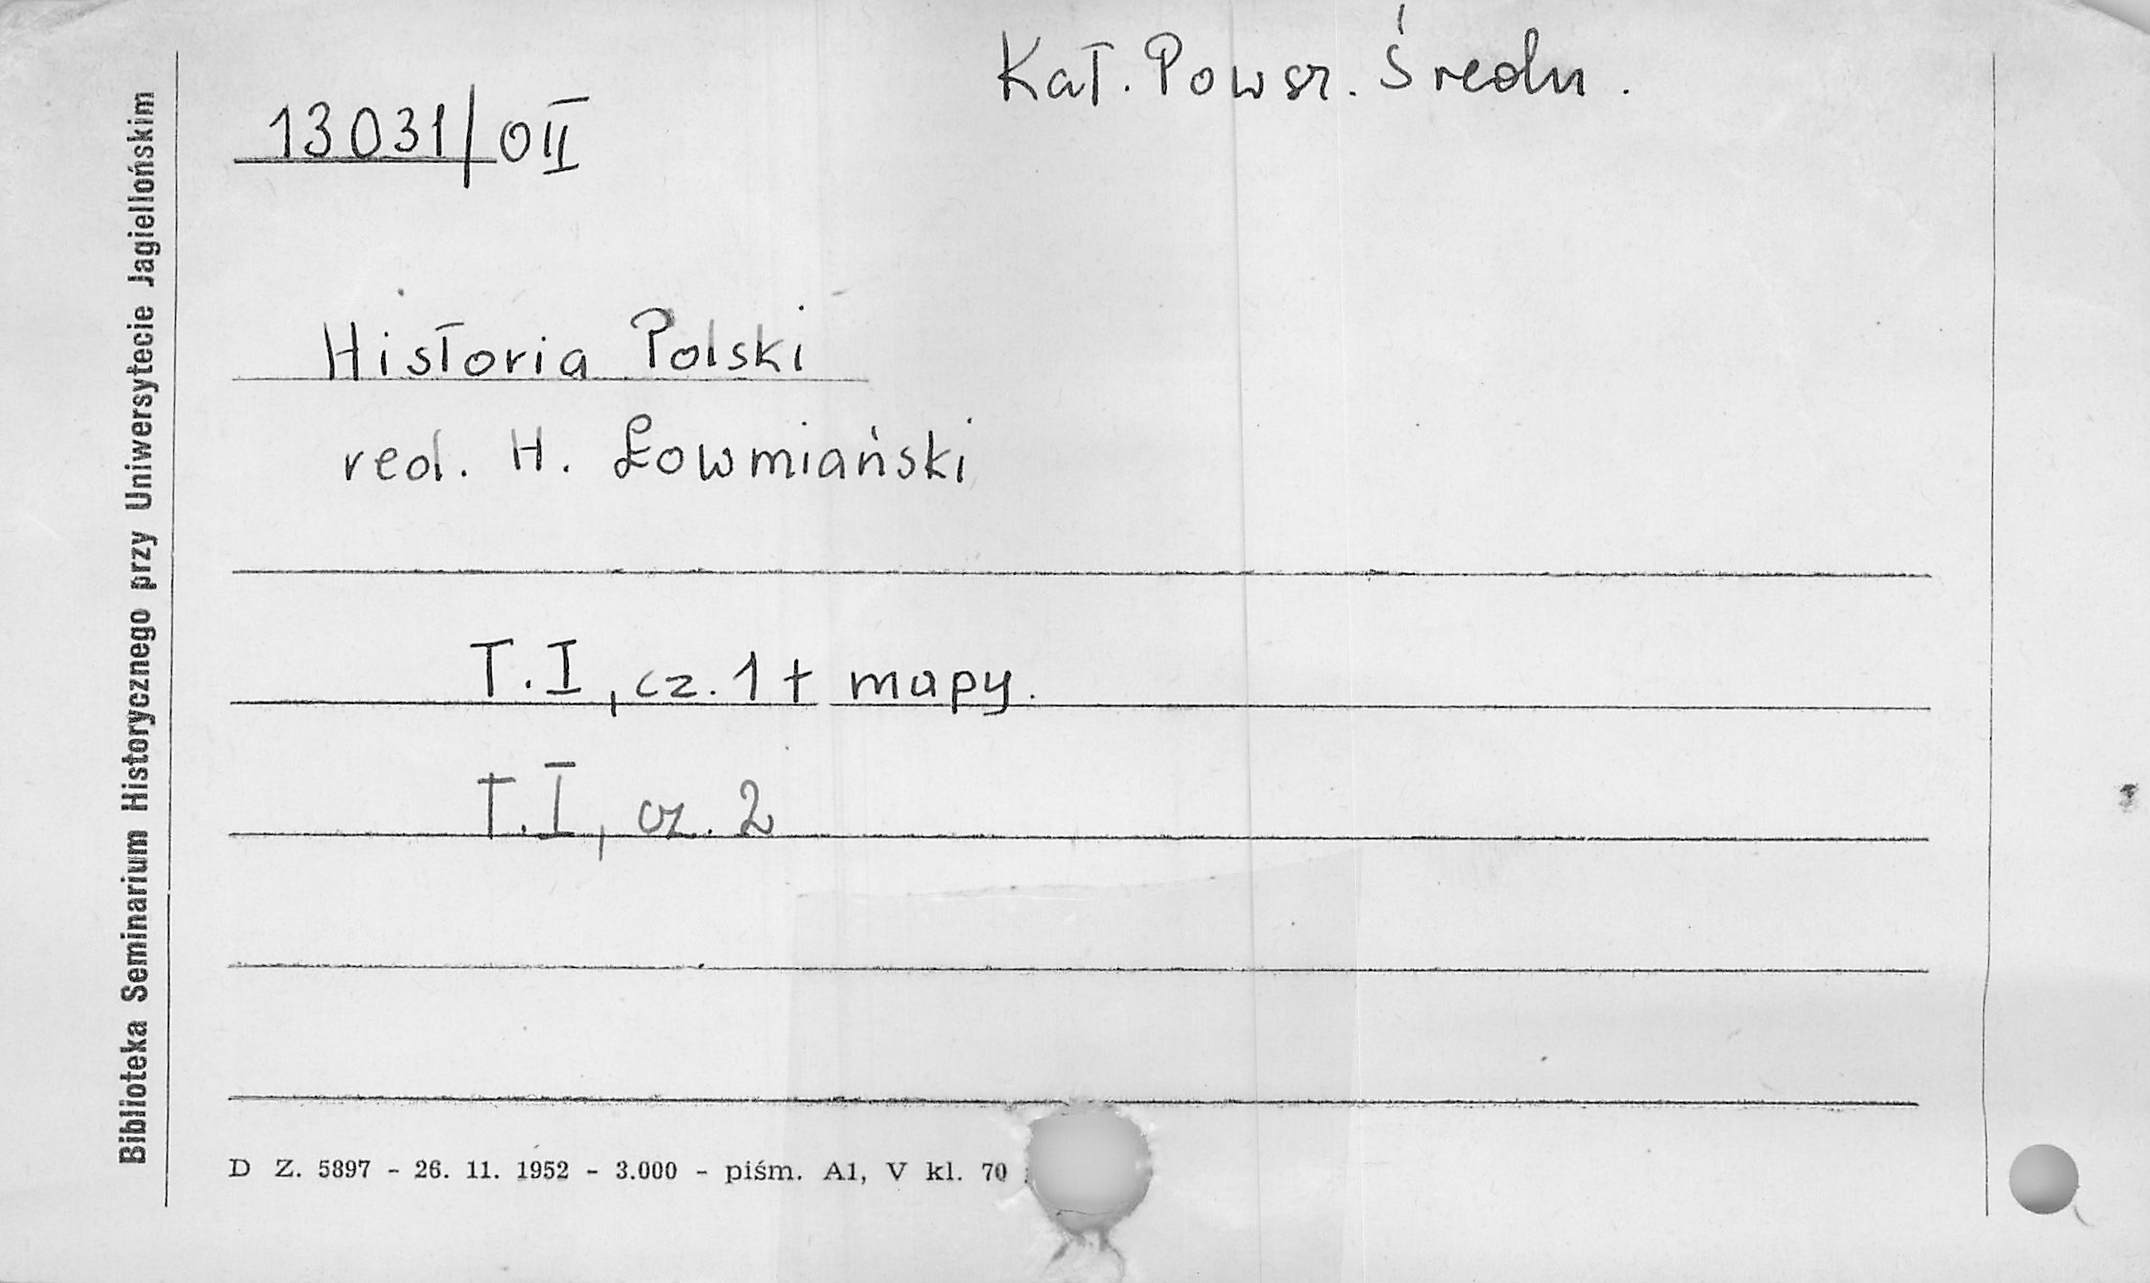 Kat. Powsz. Średn.
13031/OII
Historia Polski
red. H. Łowmiański
T.I, cz. 1 + mapy.
T.I, cz. 2
Biblioteka Seminarium Historycznego przy Uniwersytecie Jagiellońskim
D Z. 5897 - 26. 11. 1952 - 3.000 - piśm. A1, V kl. 70